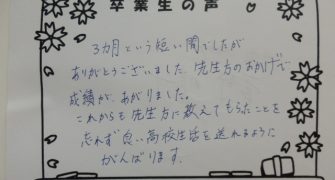 卒業生の声
3カ月という短い間でしたが
ありがとうございました。先生方のおかげで
成績が、あがりました。
これからも先生方に教えてもらったことを
忘れず良い高校生活を送れるように
がんばります。